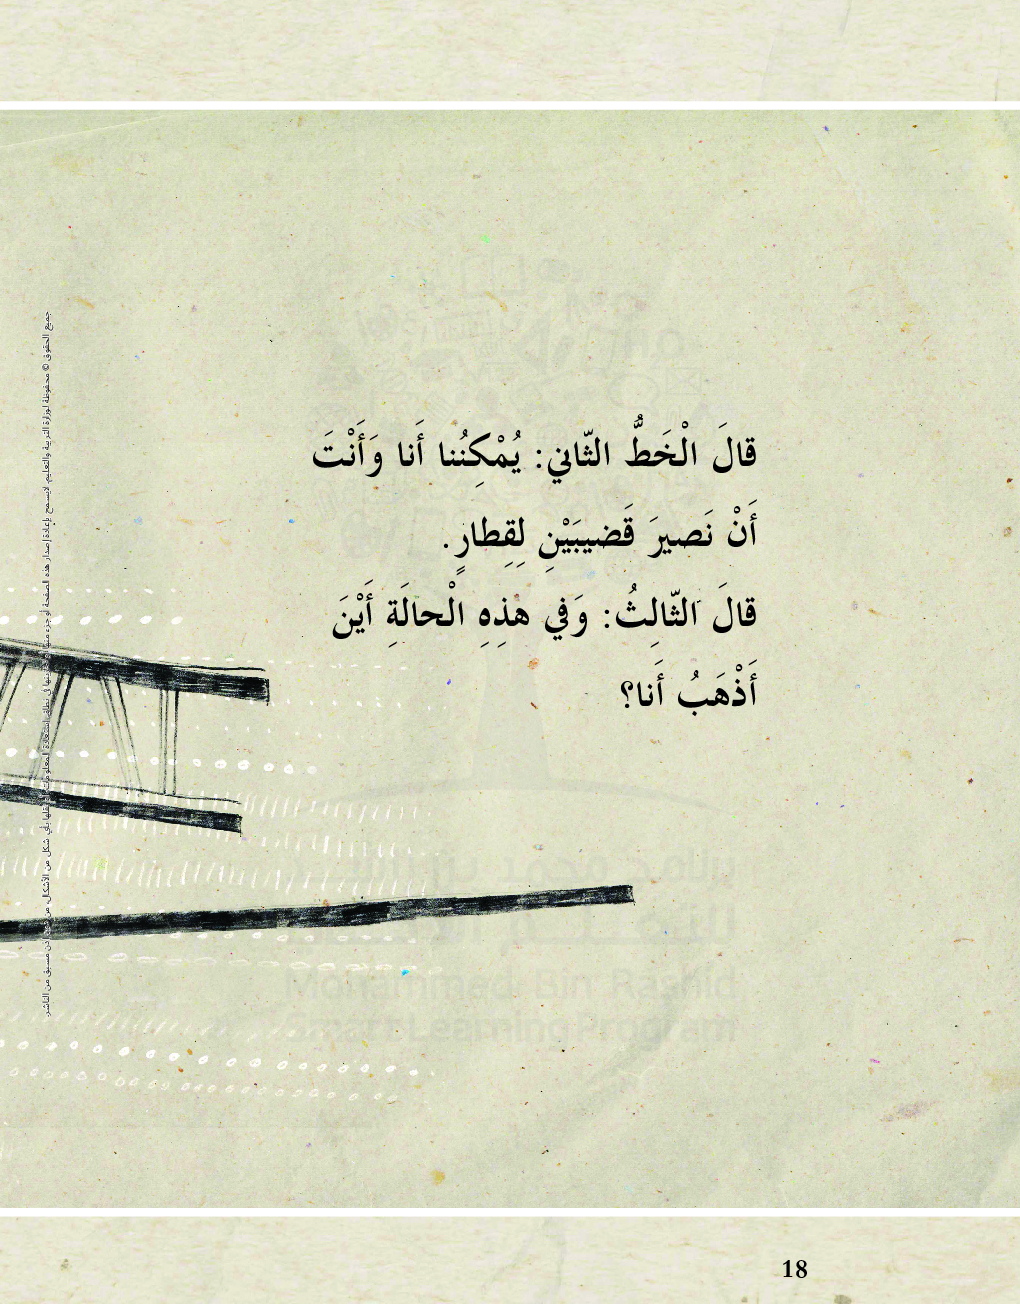 قالَ الْخَطُّ الثّاني: يُمْكِنُنا أَنا وَأَنْتَ
أَنْ نَصيرَ قَضيبَيْنِ لِقِطارٍ.
قالَ الثّالِثُ: وَفي هذِهِ الْحالَةِ أَيْنَ
أَذْهَبُ أَنا؟
جميع الحقوق © محفوظة لوزارة التربية والتعليم. لايسمح بإعادة إصدار هذه الصفحة أو جزء منها أو تخزينها في نطاق استعادة المعلومات أو نقلها بأي شكل من الأشكال، من دون إذن مسبق من الناشر.
محمد بن راشد
للتعلم الذكي
Mohammed Bin Rashid
Smart Learning Program
18